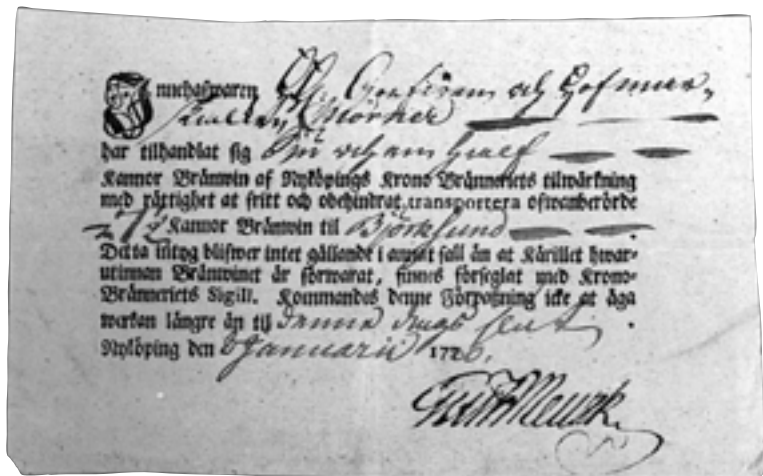 Innehafwaren Hr Grefwen och Hofmar-
skalken Mörner
har tilhandlat sig Sju och en half
Kannor Bränwin af Nyköpings Krono Bränneriets tilwärkning
med rättighet at fritt och obehindrat transportera ofwanberörde
7½ Kannor Bränwin til Björksund
Detta intyg blifwer intet gällande i annat fall än at Kärillet hwar-
utinnan Bränwinet är förwarat, finnes förseglat med Krono-
Bränneriets Sigill. Kommandes denne Förpaßning icke at äga
werkan längre än til denna dags slut.
Nyköping den Januarii 17